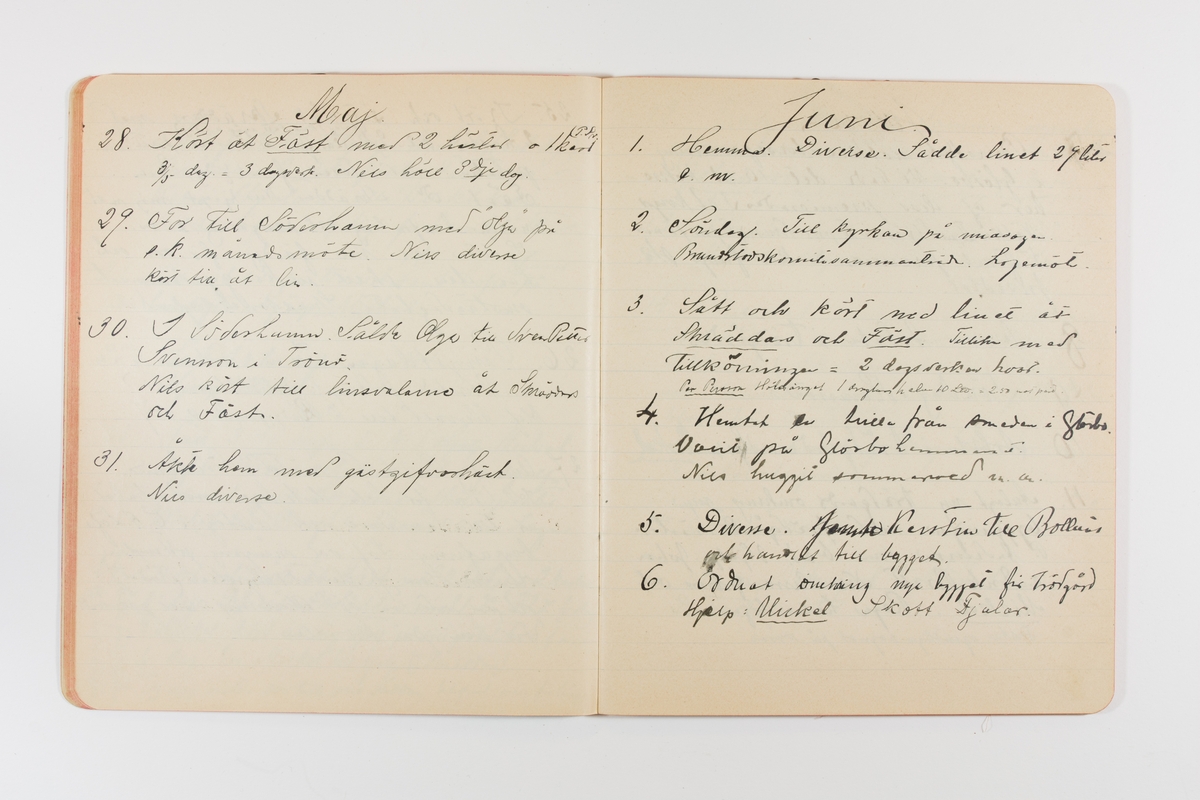 Maj
28. Kört åt Fäst med 2 hästar o 1 karl
dag. = 3 dagsverk. Nils höll 3dje dag.
29. For till Söderhamn med Olga på
s.k. månadsmöte. Nils diverse
kört åt lin.
30. I Söderhamn. Sålde Olga till Sven Petter
Svenson i Trönö.
Nils kört till linsvalarne åt Skräddars
och Fäst.
31. Åkte hem med gästgifvarhäst.
Nils diverse.
Juni
1. Hemma. Diverse. Sådde linet 29 liter
e. m.
2. Söndag. Till kyrkan på missan.
Brandstodskomitesammanträde. Logemöt.
3. Sått och kört med linet åt
Skräddars och Fäst. Tillika med
Tillkörningen = 2 dagsverken hvar.
Per Persson
4. Hemtat en trilla från smeden i Glösbo.
Varit på Glösbo hemmanet.
Nils huggit sommarved m. m.
5. Diverse. Kerstin till Bollnäs
och handlat till bygget.
6. Ordnat omkring nya bygget för Trädgård
Hjelp: Miskel Skott Fjalar.